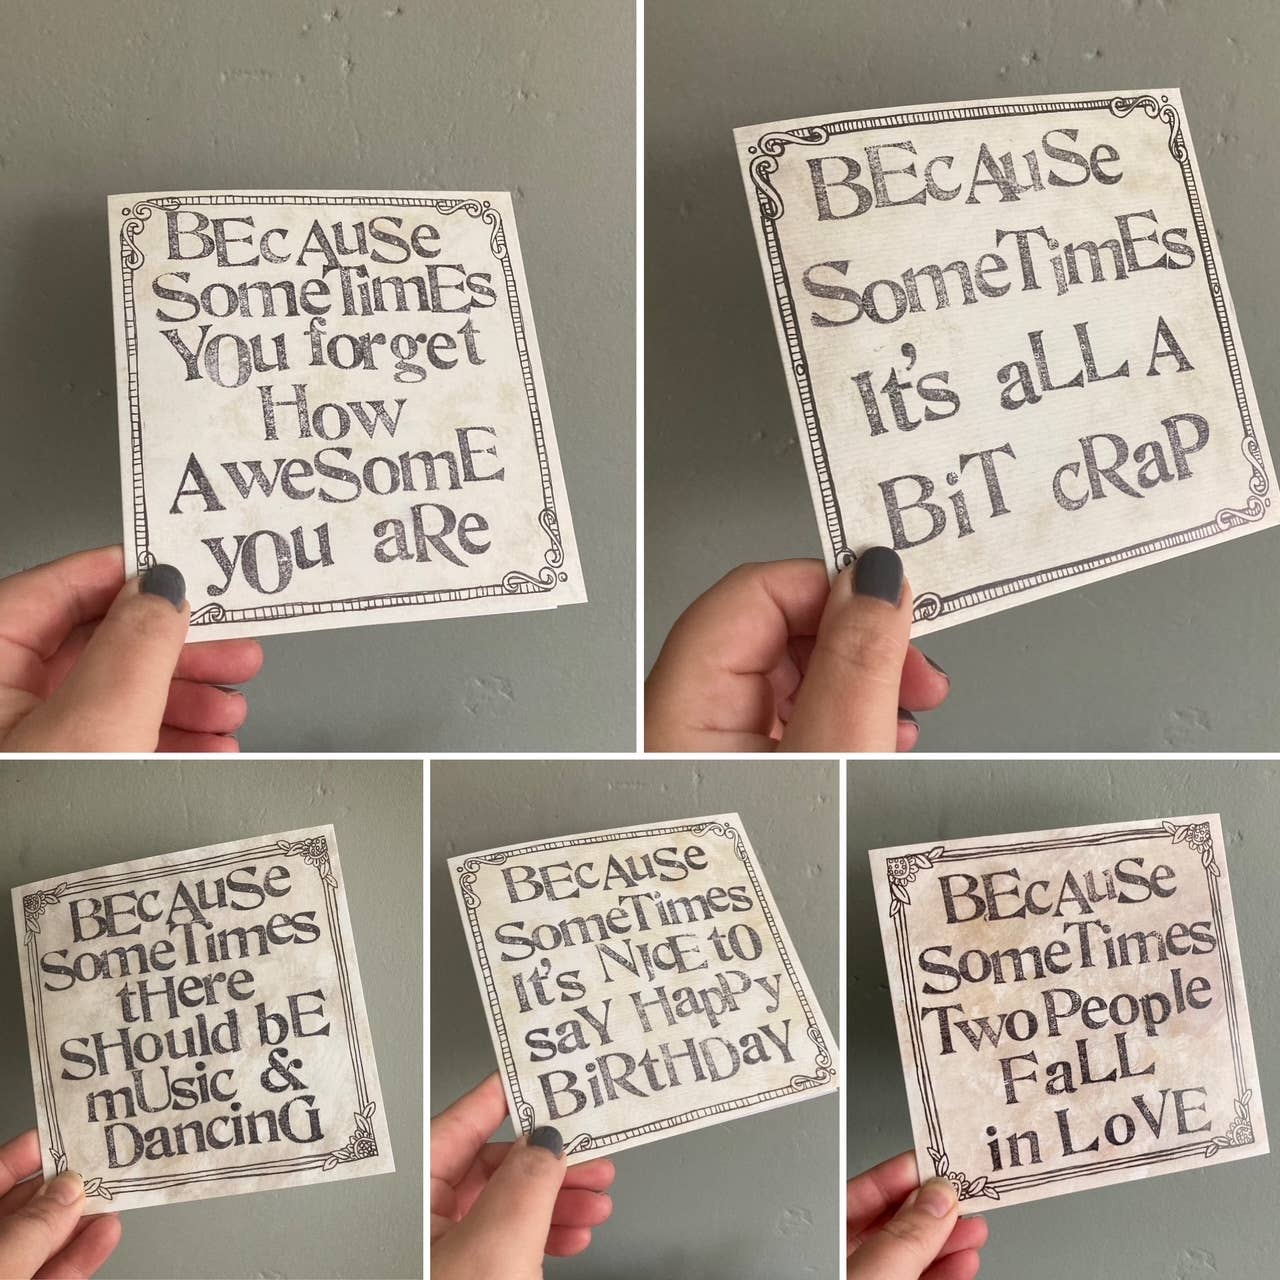 BEcAuSe
SomeTimEs
YOu forget
How
AweSomE
yOu aRe
BEcAuSe
SomeTimEs
It's aLL A
BiT cRaP
BEcAuSe
SomeTimes
tHere
SHould bE
mUsic &
DancinG
BEcAuSe
SomeTimes
It's NicE tO
saY HapPy
BiRtHDaY
BEcAuSe
SomeTimes
Two People
FaLL
in LoVE